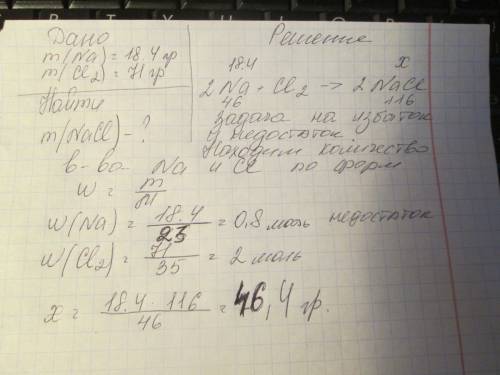 Дано
m(Na) = 18.4 гр
m(Cl2) = 71 гр
Найти
m(NaCl) - ?
Решение
18.4 x
2Na + Cl2 → 2NaCl
46 116
Задача на избыток
и недостаток.
Находим количество
в-ва Na и Cl по форм
w = m/M
w(Na) = 18.4/23 = 0,8 моль недостаток
w(Cl2) = 71/35 = 2 моль
x = 18.4 · 116/46 = 46,4 гр.